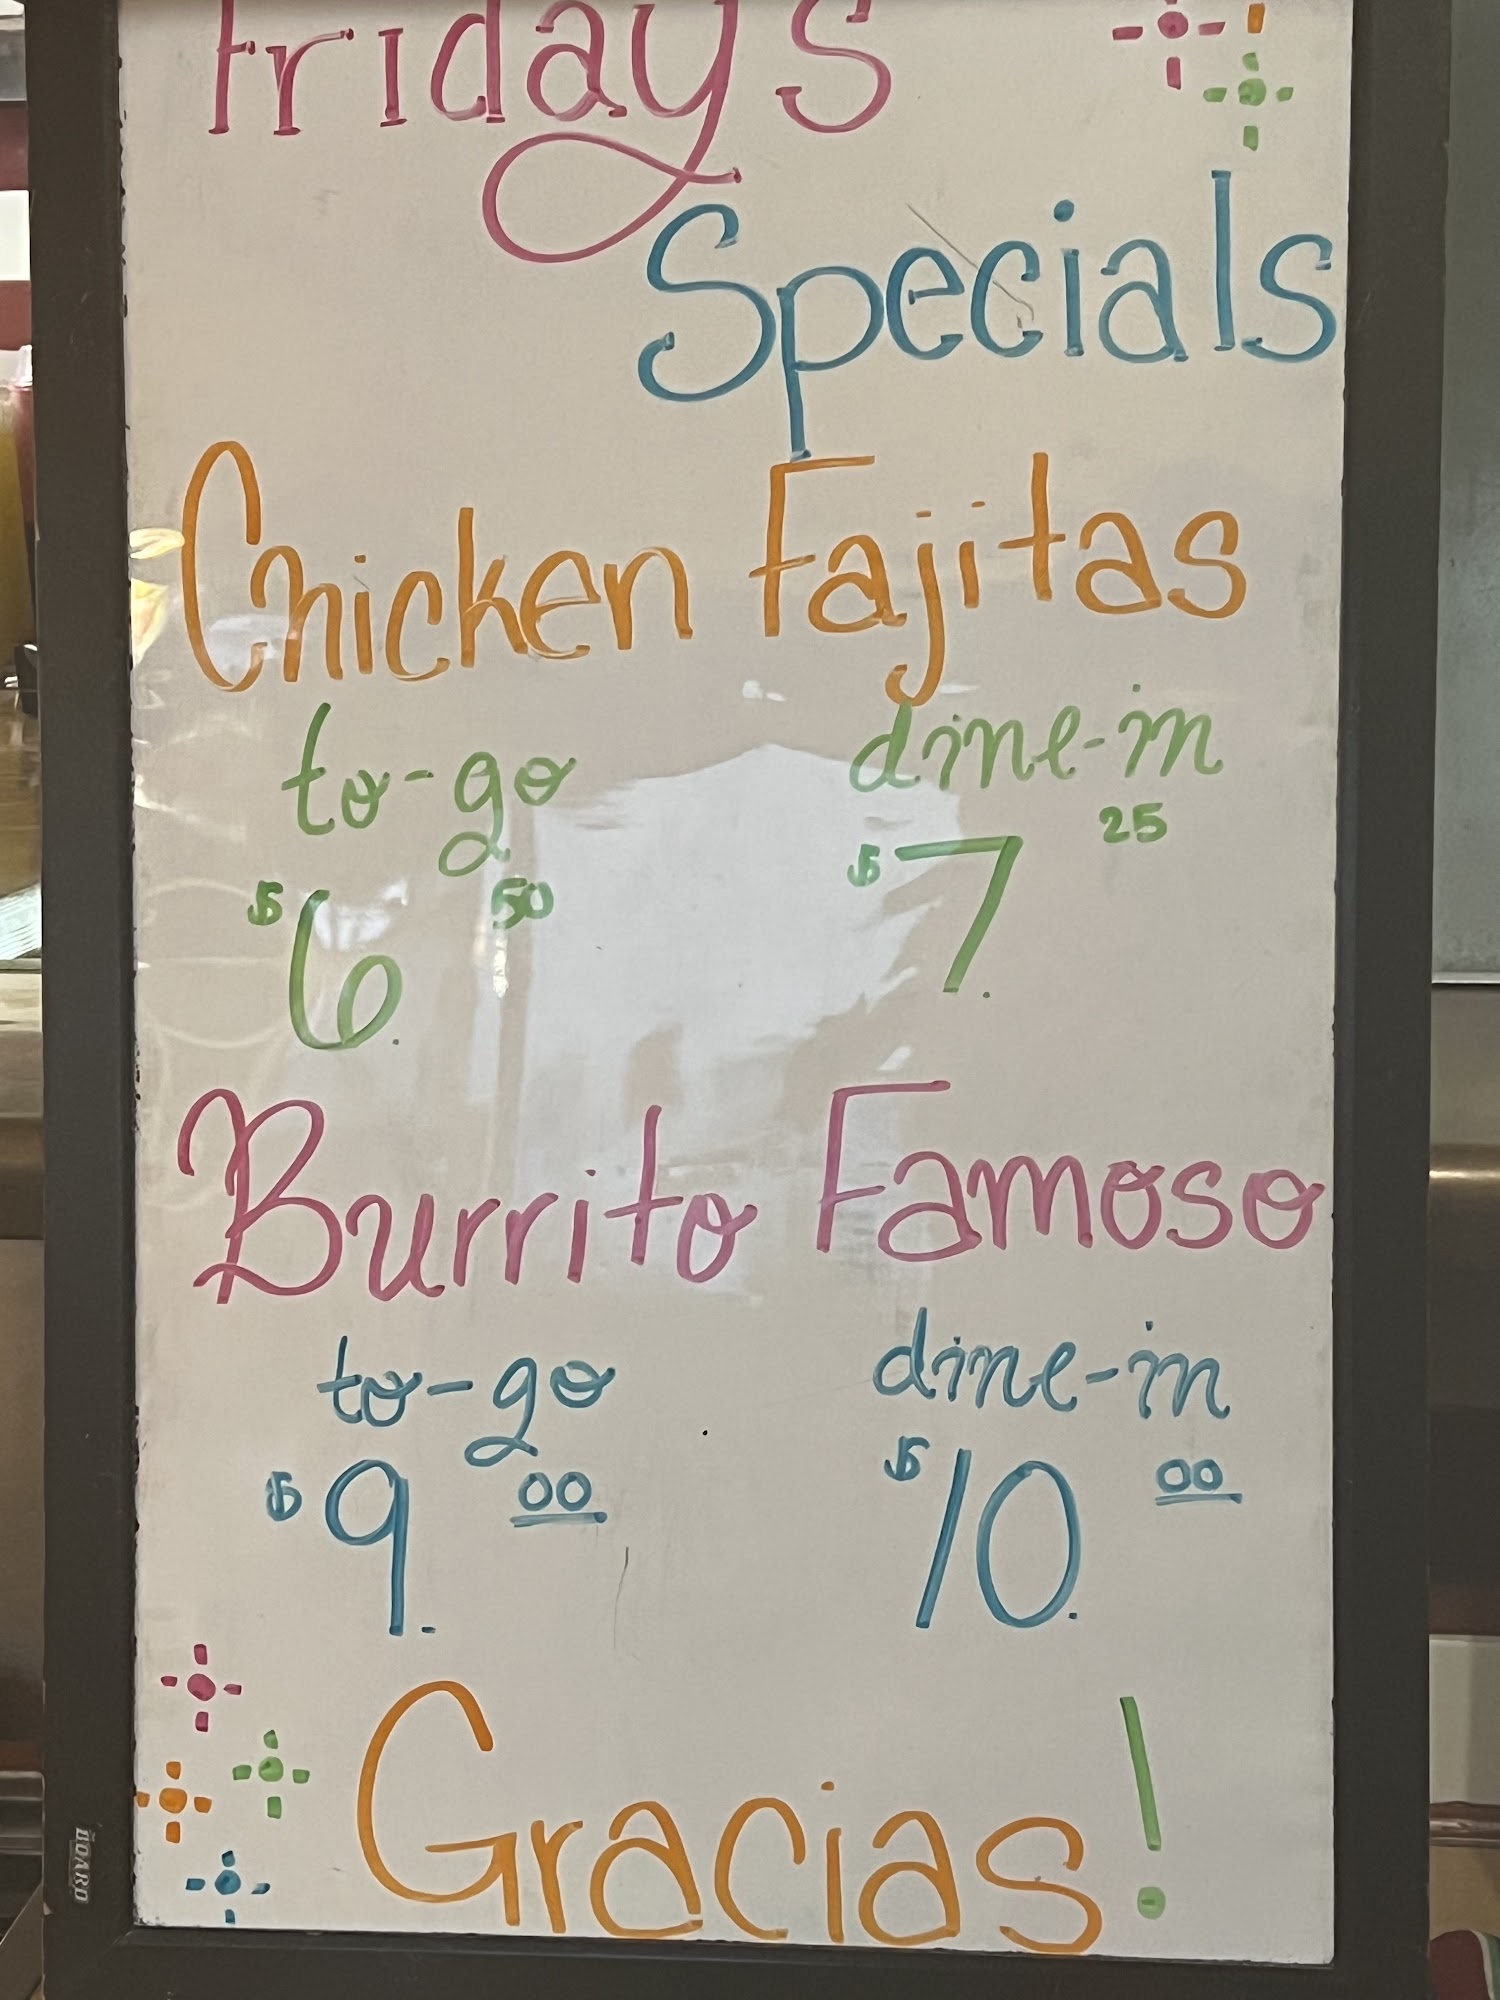 Friday's
Specials
Chicken Fajitas
to-go dine-in
$6.50 $7.25
Burrito Famoso
to-go dine-in
$9.00 $10.00
Gracias!
BOARD